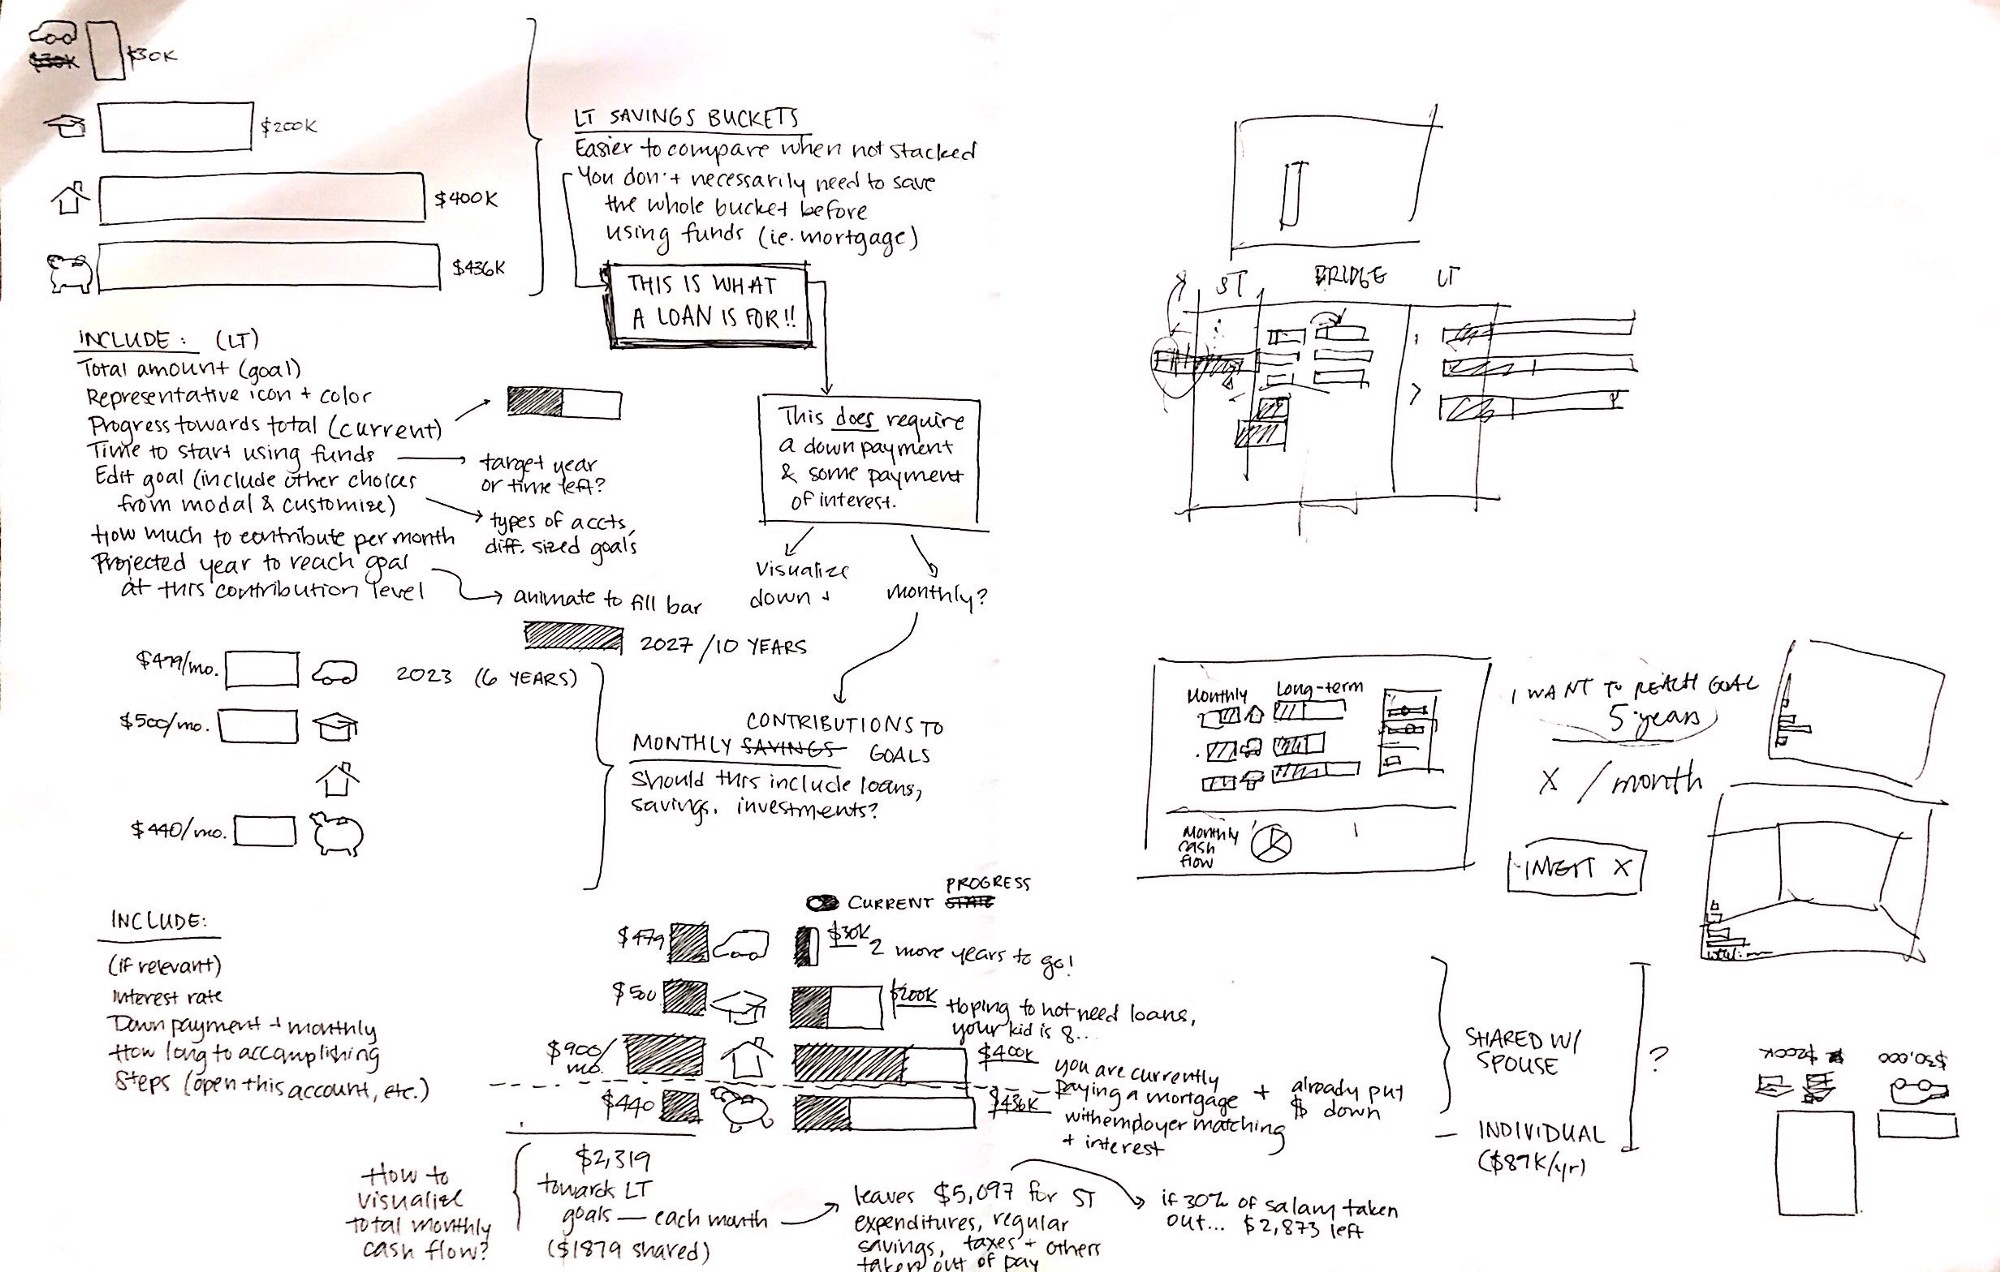 $30K
$200K
$400K
$436K
LT SAVINGS BUCKETS
Easier to compare when not stacked
You don't necessarily need to save
the whole bucket before
using funds (ie. mortgage)
THIS IS WHAT
A LOAN IS FOR!!
This does require
a down payment
& some payment
of interest.
Visualize
down +
monthly?
INCLUDE: (LT)
Total amount (goal)
Representative icon + color
Progress towards total (current)
Time to start using funds
target year
or time left?
Edit goal (include other choices
from modal & customize)
types of accts,
diff. sized goals
How much to contribute per month
Projected year to reach goal
at this contribution level
animate to fill bar
2027 / 10 YEARS
$479/mo.
2023 (6 YEARS)
$500/mo.
$440/mo.
CONTRIBUTIONS TO
MONTHLY SAVINGS GOALS
Should this include loans,
savings, investments?
INCLUDE:
(if relevant)
Interest rate
Down payment + monthly
How long to accomplishing
Steps (open this account, etc.)
PROGRESS
CURRENT STATE
$479
$30K
2 more years to go!
$500
$200K
Hoping to not need loans,
your kid is 8...
$900/
mo.
$400K
you are currently
paying a mortgage + already put
$ down
$440
$436K
with employer matching
+ interest
How to
visualize
total monthly
cash flow?
$2,319
towards LT
goals — each month
($1879 shared)
leaves $5,097 for ST
expenditures, regular
savings, taxes + others
taken out of pay
if 30% of salary taken
out... $2,873 left
SHARED W/
SPOUSE
?
INDIVIDUAL
($89K/yr)
ST BRIDGE LT
Monthly Long-term
Monthly
cash
flow
I WANT TO REACH GOAL
5 years
X / month
$200K
$30,000